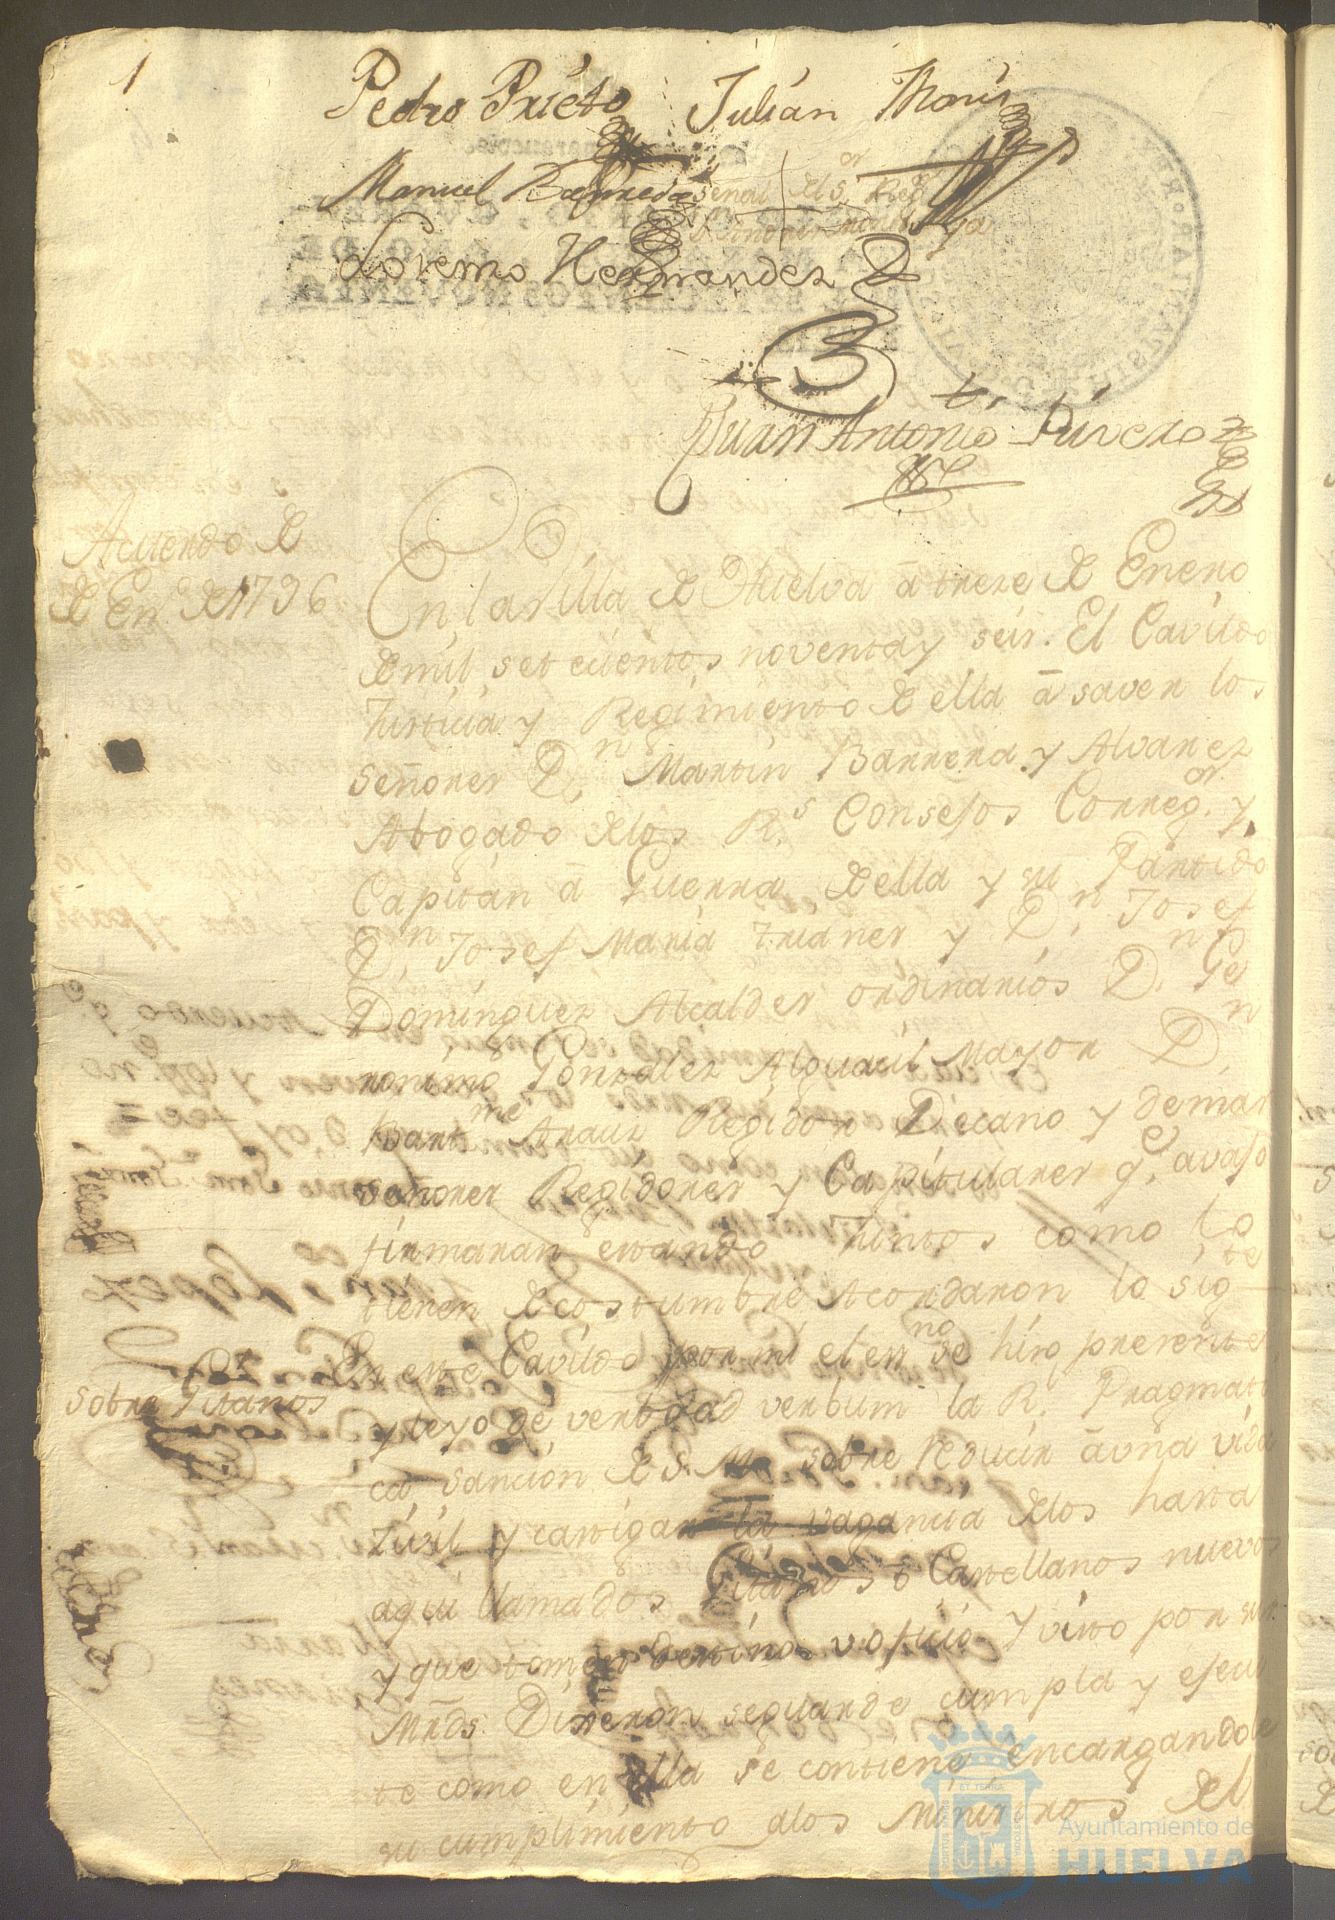 1
Pedro Prieto Julián
Manuel señal del Sr. Regr
Lorenzo Hernandez
Juan Antonio Rivero
Acuerdo de
de En.º de 1796
En la Villa de Huelva â treze de Enero
de mil setecientos noventa y seis. El Cavildo
Justicia y Regimiento de ella â saver los
señores Dn Martin Barrera y Alvarez
Abogado de los Rs Consejos Corregor y
Capitan â Guerra de ella y su Partido
Dn Josef Maria y Dn Josef
Dominguez Alcaldes ordinarios Dn Ge
ronimo Gonzalez Alguacil Mayor Dn
Bartme Arauz Regidor Decano y demas
señores Regidores y Capitulares qe avajo
firmaran estando Juntos como lo
tienen de costumbre Acordaron lo sigte
En este Cavildo por mi el esno se hizo presente
Sobre Gitanos
y leyo de verbo ad verbum la Rl Pragmati
ca sancion de S. M. sobre reducir â una vida
civil y castigar la vagancia de los hasta
aqui llamados Gitanos o Castellanos nuevos
y que tomen destinos u oficio y visto por sus
Mrds. Dixeron se guarde cumpla y ejecu
te como en ella se contiene encargandole
su cumplimiento a los Ministros del
Ayuntamiento de
HUELVA